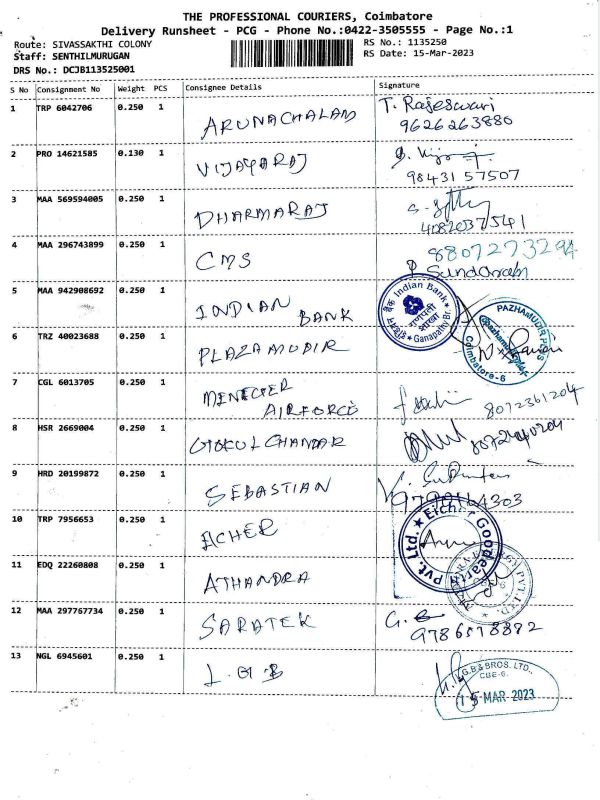 THE PROFESSIONAL COURIERS, Coimbatore
Delivery Runsheet - PCG - Phone No.:0422-3505555 - Page No.:1
Route: SIVASSAKTHI COLONY
RS No.: 1135250
Staff: SENTHILMURUGAN
RS Date: 15-Mar-2023
DRS No.: DCJB113525001
S No Consignment No Weight PCS Consignee Details Signature
1 TRP 6042706 0.250 1 ARUNACHALAM T. Rajeswari
9626263880
2 PRO 14621585 0.130 1 VIJAYARAJ
98431 57507
3 MAA 569594005 0.250 1 DHARMARAJ
4 MAA 296743899 0.250 1 CMS 8807273294
P Sundaram
5 MAA 942908692 0.250 1 INDIAN BANK
Indian Bank
गणपती
शाखा
Ganapathy Br.
6 TRZ 40023688 0.250 1 PLAZAMUDIR
PAZHAMUDIR
Coimbatore-6
7 CGL 6013705 0.250 1
AIRFORCE
8072361204
8 HSR 2669004 0.250 1 GOKULCHANDAR
9 HRD 20199872 0.250 1 SEBASTIAN
10 TRP 7956653 0.250 1 ACHER
Eicher Goodearth Pvt. Ltd.
11 EDQ 22260808 0.250 1 ATHANDRA
PVT. LTD.
12 MAA 297767734 0.250 1 SARATEK G.
13 NGL 6945601 0.250 1 L.G B
L.G.B & BROS. LTD.,
CBE-6.
15 MAR 2023